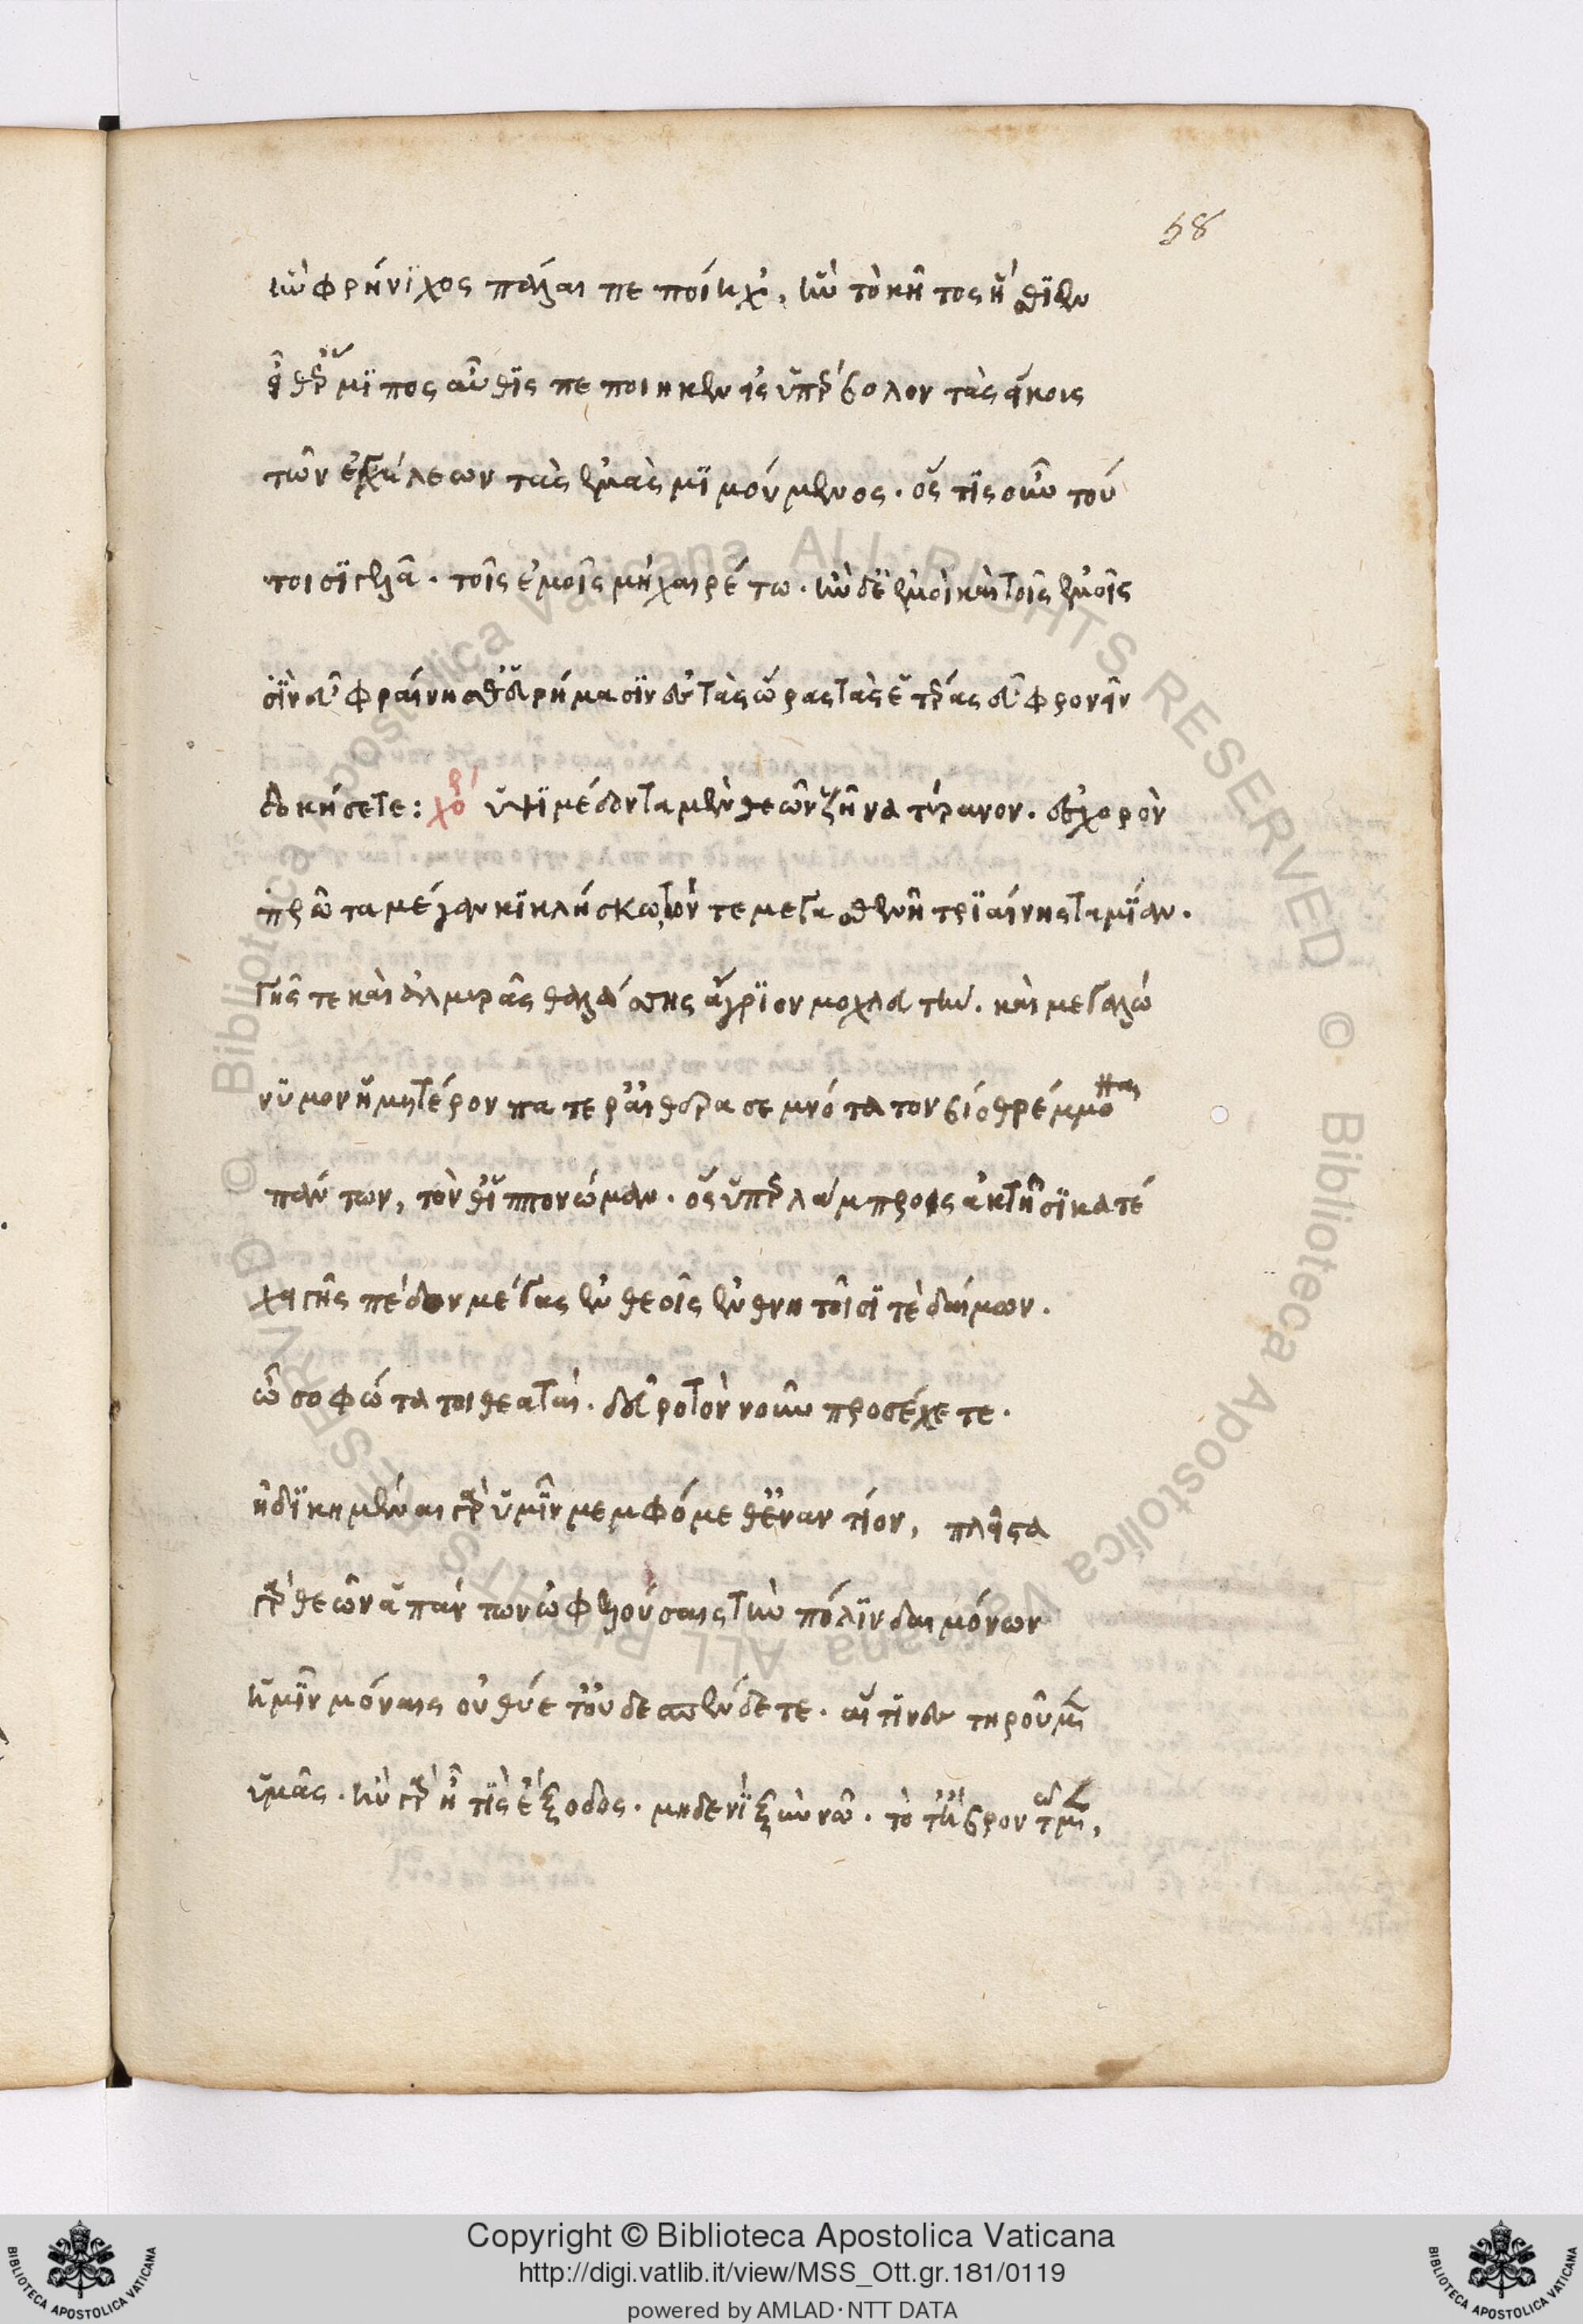 58
ἣν φρύνιχος πάλαι πεποίηχ', ἣν τὸ κῆτος ἤσθιεν
εἶθ' ἕρμιπος αὖθις πεποίηκεν εἰς ὑπέρβολον τὰς εἰκοὺς
τῶν ἐγχέλεων τὰς ἐμὰς μιμούμενος. ὅστις οὖν τού
τοισι γελᾶ. τοῖς ἐμοῖς μὴ χαιρέτω. ἢν δ' ἐμοὶ καὶ τοῖς ἐμοῖς
εὐφραίνησθ' εὑρήμασιν ἐς τὰς ὥρας τὰς ἑτέρας εὖ φρονεῖν
δοκήσετε: χορ ὑψιμέδοντα μὲν θεῶν ζῆνα τύρανον. ἐς χορὸν
πρῶτα μέγαν κικλήσκω, τόν τε μεγασθενῆ τριαίνης ταμίαν.
γῆς τε καὶ ἁλμυρᾶς θαλάσσης ἄγριον μοχλευτήν. καὶ μεγαλώ
νυμον ἡμέτερον πατέρ' αἰθέρα σεμνότατον βιοθρέμμονα
πάντων, τόν θ' ἱππονώμαν. ὃς ὑπερλάμπροις ἀκτῖσι κατέ
χει γῆς πέδον μέγας ἐν θεοῖς ἐν θνητοῖσί τε δαίμων.
ὦ σοφώτατοι θεαταί. δεῦρο τὸν νοῦν προσέχετε.
ἠδικημέναι γὰρ ὑμῖν μεμφόμεθ' ἐναντίον, πλεῖστα
γὰρ θεῶν ἁπάντων ὠφελούσαις τὴν πόλιν δαιμόνων
ἡμῖν μόναις οὐ θύετ' οὐδὲ σπένδετε. αἵτινες τηροῦμεν
ὑμᾶς. ἢν γὰρ ἦ τις ἔξοδος. μηδενὶ ξὺν νῶ. τότ' ἢ βροντῶμεν,
Copyright © Biblioteca Apostolica Vaticana
http://digi.vatlib.it/view/MSS_Ott.gr.181/0119
powered by AMLAD·NTT DATA